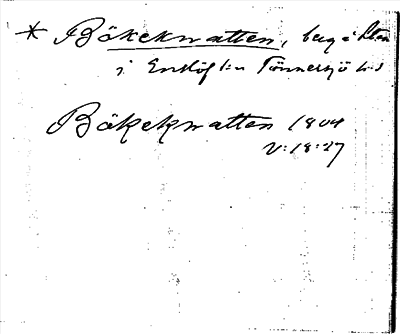 * Bökeknatten, berg å
i Enslöf l:n Tönnersjö h:d
Bökeknatten 1804
V:18:27